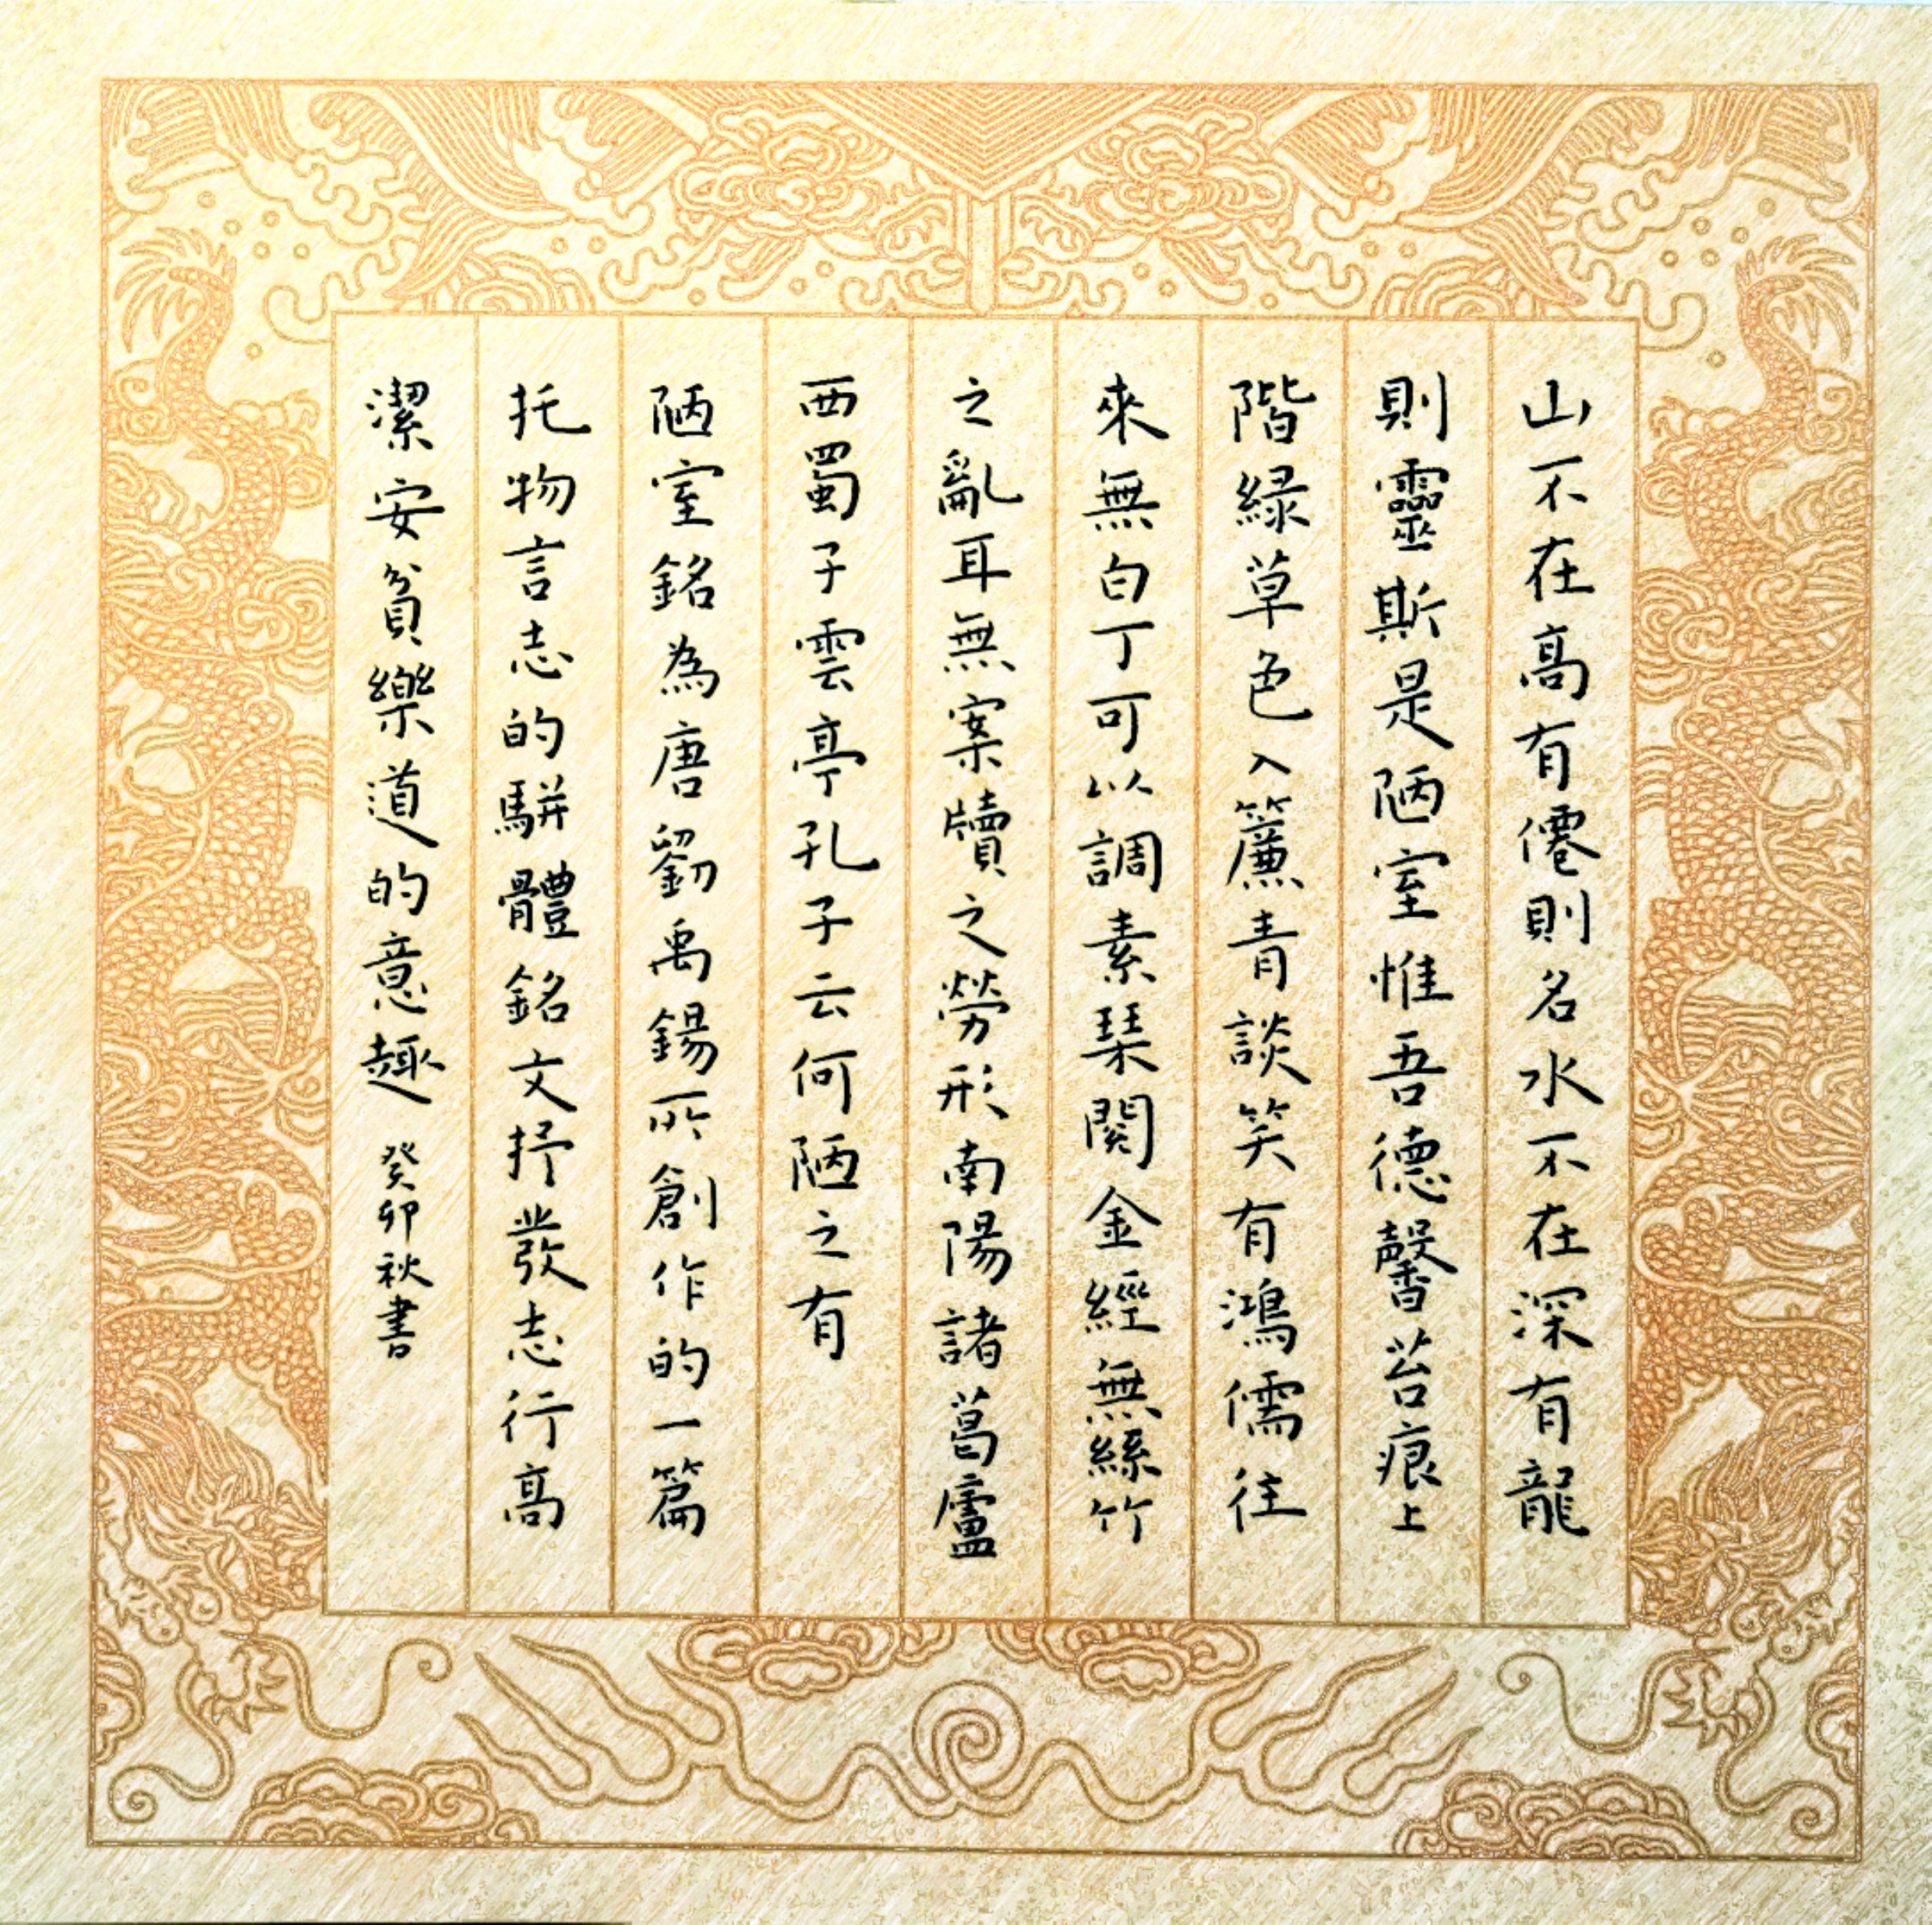 山不在高有僊則名水不在深有龍
則靈斯是陋室惟吾德馨苔痕上
階緑草色入簾青談笑有鴻儒往
來無白丁可以調素琴閱金經無絲竹
之亂耳無案牘之勞形南陽諸葛廬
西蜀子雲亭孔子云何陋之有
陋室銘為唐劉禹錫所創作的一篇
托物言志的駢體銘文抒發志行高
潔安貧樂道的意趣 癸卯秋書